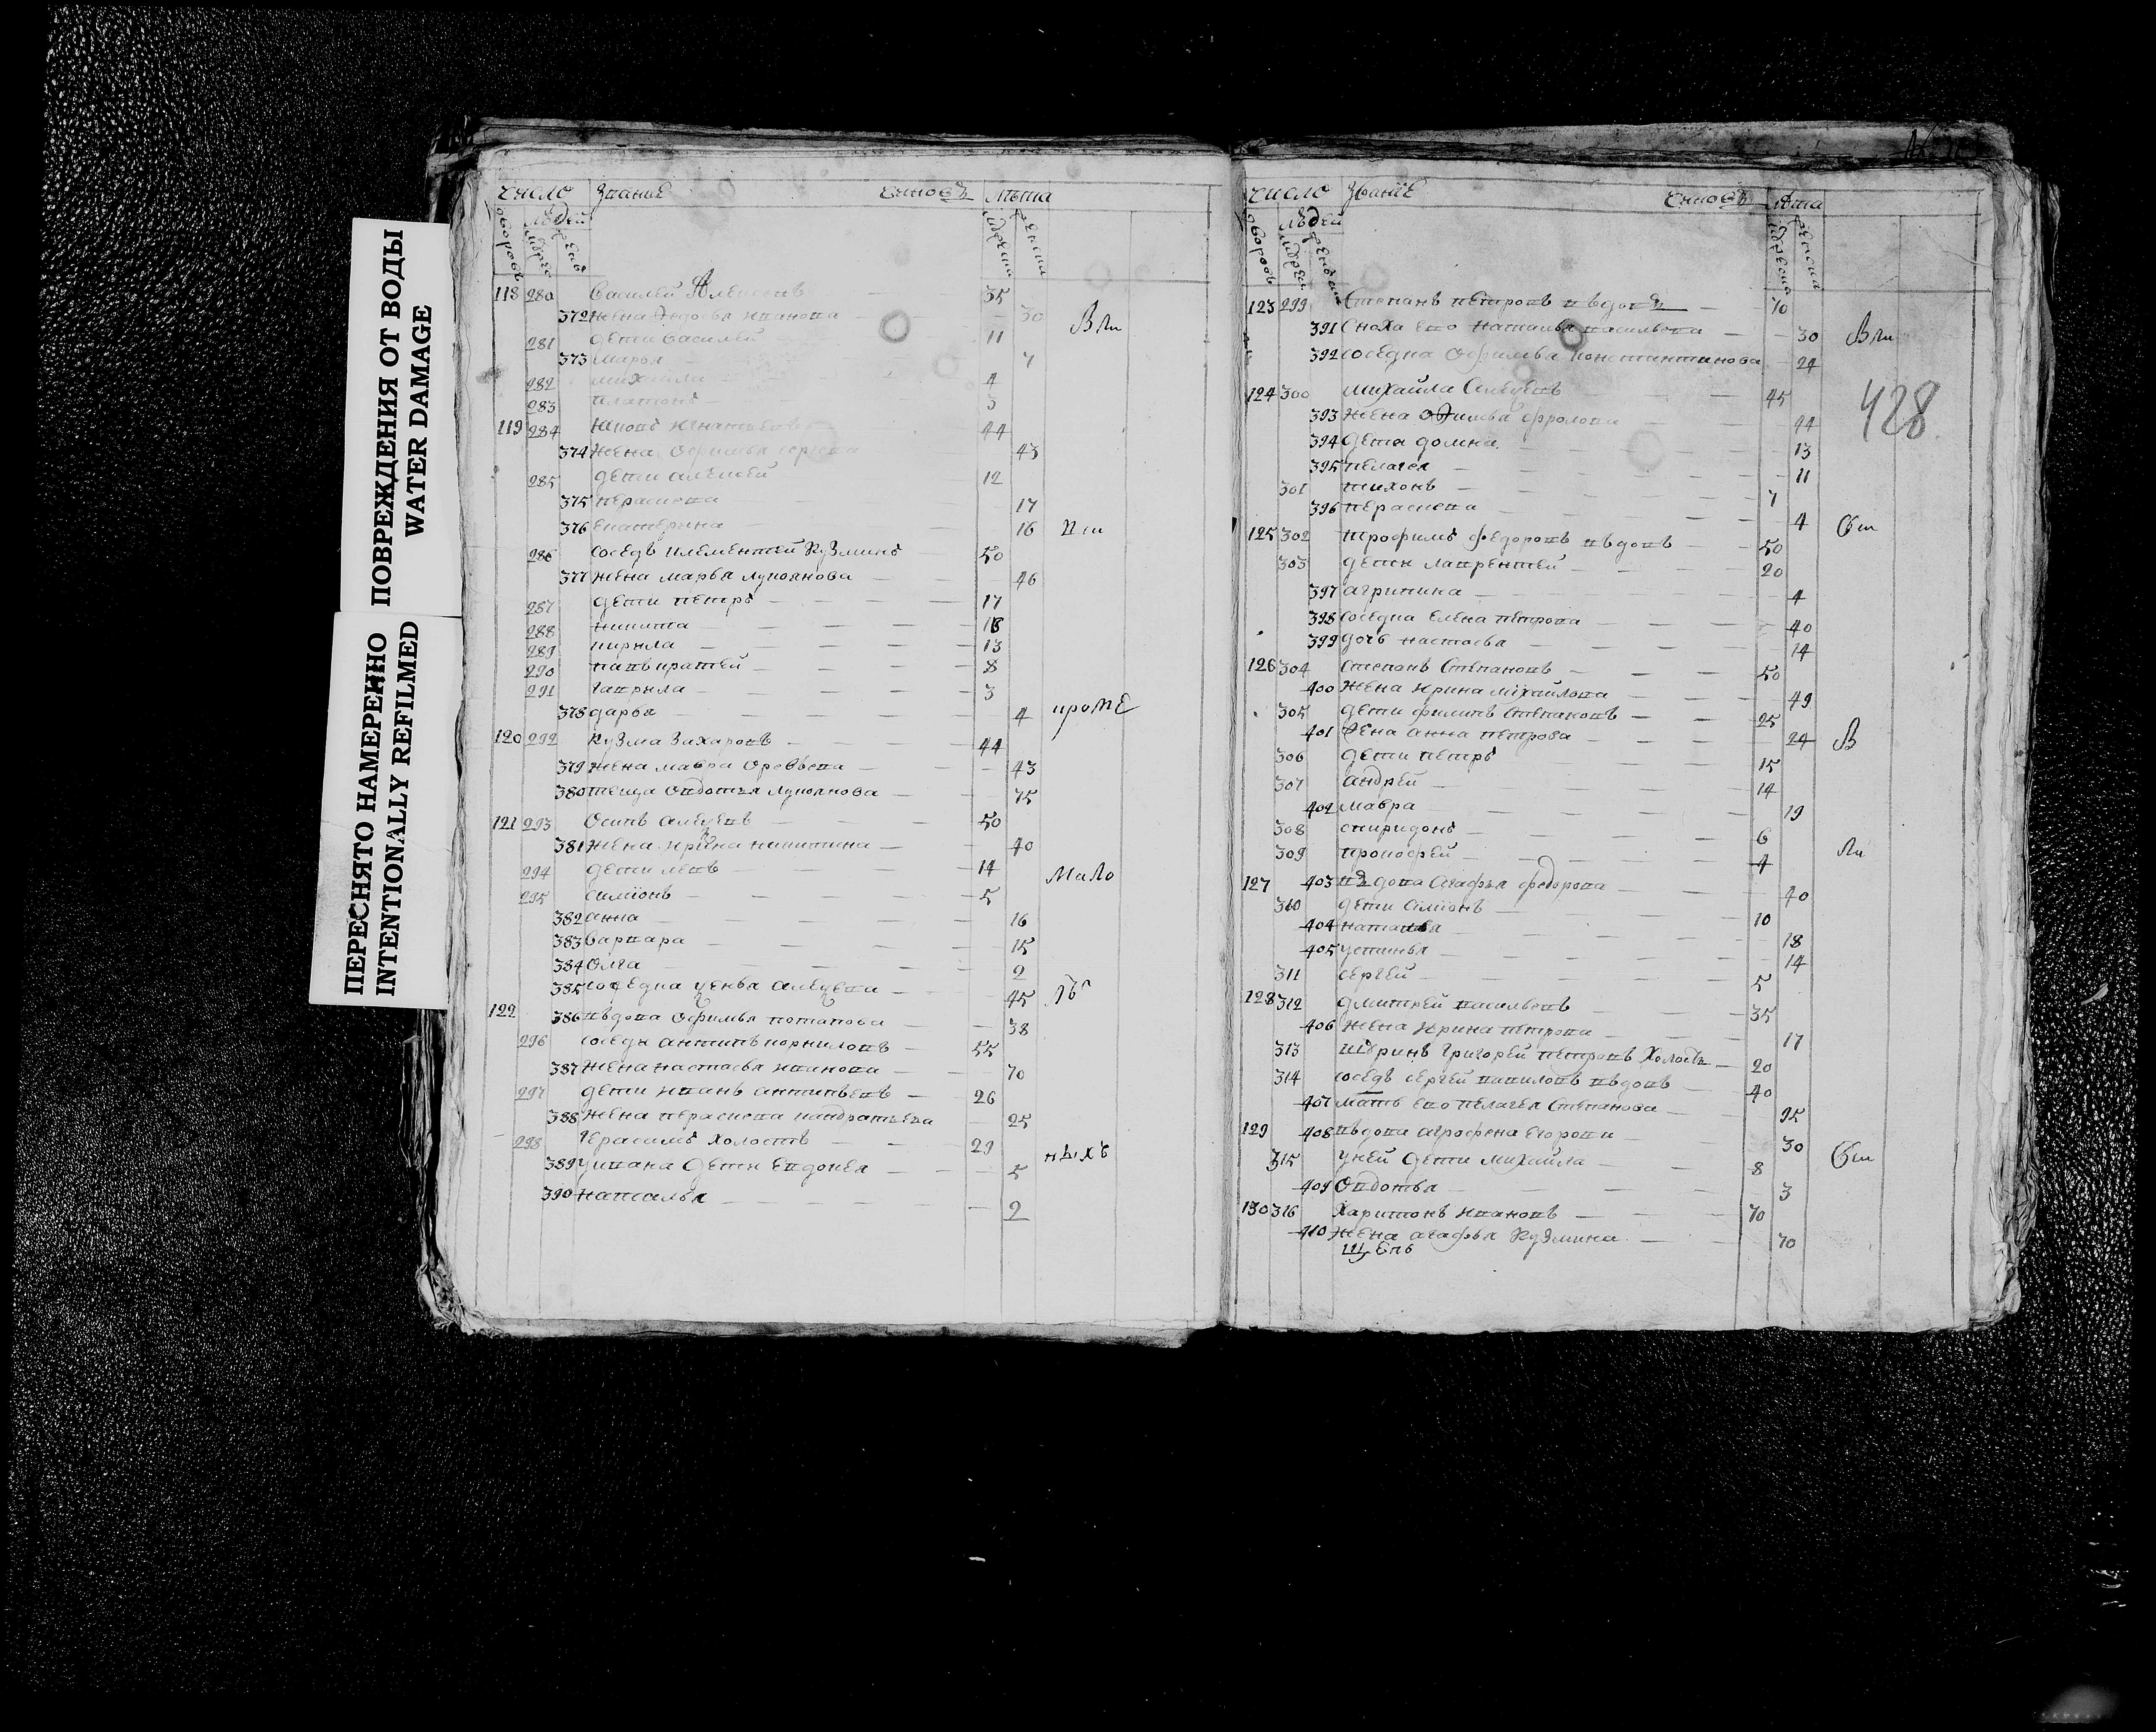 ПОВРЕЖДЕНИЯ ОТ ВОДЫ
WATER DAMAGE
ПЕРЕСНЯТО НАМЕРЕННО
INTENTIONALLY REFILMED
число Звание чиновъ лѣта
дворовъ людей
118 280 Василей 35
372 жена Иванова 30
Вли
281 дети Василей 11
373 Марья 7
282 михаила 4
283 платонъ 3
119 284 44
374 жена Офимья 43
285 дети алексей 12
375 Пераскева 17
376 екатерина 16
286 соседъ клементей Кузминъ 50
377 жена марья лукянова 46
287 дети петръ 17
288 никита 18
289 кирила 13
290 панъкратей 8
291 гаврила 3
378 дарья 4
кроме
120 292 Кузма Захаровъ 44
379 жена мавра 43
380 теща Овдотья лукянова 75
121 293 Осипъ 50
381 жена Ирина никитина 40
294 дети левъ 14
мало
295 симионъ 5
382 анна 16
383 варвара 15
384 Олга 2
385 соседка 45
лѣ
122 386 вдова Офимья потапова 38
296 соседъ антипъ корниловъ 55
387 жена настасья иванова 70
297 дети иванъ антипьевъ 26
388 жена пераскева кандратьева 25
298 Герасимъ холостъ 29
ныхъ
389 уивана дети евдокея 5
390 наталья 2
число Звание чиновъ лѣта
дворовъ людей
123 299 Степанъ петровъ вдовъ 70
391 сноха ево наталья васильева 30
Вли
392 соседка Офимья константинова 24
428
124 300 михайла 45
393 жена Офимья фролова 44
394 дети домна 13
395 пелагея 11
301 тихонъ 7
396 пераскева 4
125 302 трофимъ федоровъ вдовъ 50
303 дети лаврентей 20
397 агрипина 4
398 соседка елена петрова 40
399 дочь настасья 14
126 304 степанъ Степановъ 50
400 жена Ирина михайлова 49
305 дети филипъ степановъ 25
401 жена анна петрова 24
В
306 дети петръ 15
307 андрей 14
402 мавра 19
308 спиридонъ 6
309 прокофей 4
ли
127 403 вдова Агафья федорова 40
310 дети симионъ 10
404 наталья 18
405 устинья 14
311 сергей 5
128 312 дмитрей васильевъ 35
406 жена Ирина петрова 17
313 шуринъ григорей петровъ холостъ 20
314 соседъ сергей вавиловъ вдовъ 40
407 мать ево пелагея Степанова 95
129 408 вдова агрофена егорова 30
315 уней дети михайла 8
409 Овдотья 3
130 316 Харитонъ ивановъ 70
410 жена агафья Кузмина 70